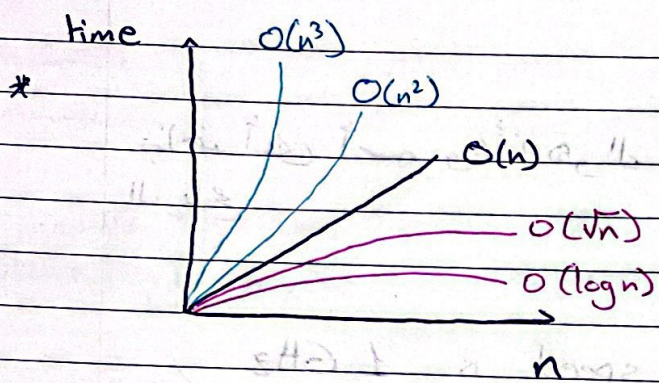 time
O(n³)
*
O(n²)
O(n)
O(√n)
O(log n)
n